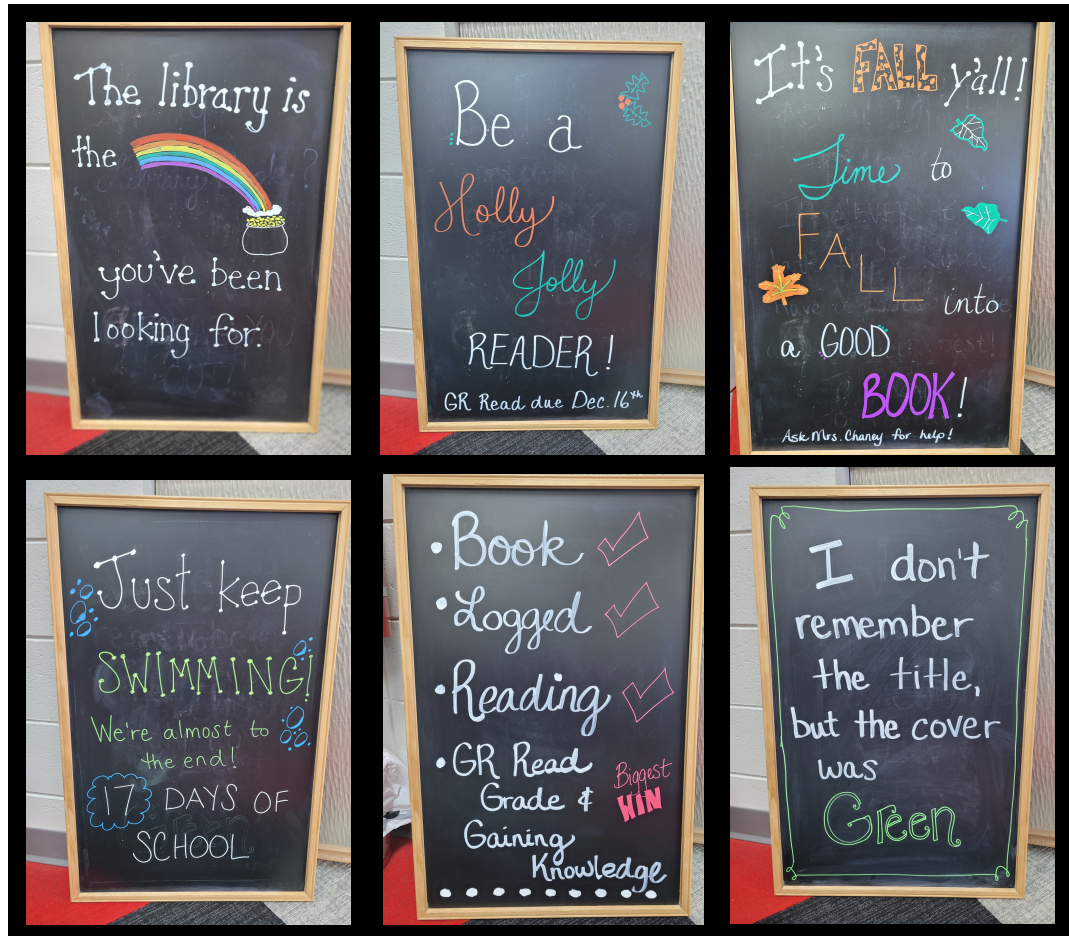 The library is
the
you've been
looking for.
Be a
Holly
Jolly
READER!
GR Read due Dec. 16th
It's FALL y'all!
Time to
FALL into
a GOOD
BOOK!
Ask Mrs. Chaney for help!
Just keep
SWIMMING!
We're almost to
the end!
17 DAYS OF
SCHOOL
• Book
• Logged
• Reading
• GR Read
Grade &
Gaining
Knowledge
Biggest
WIN
I don't
remember
the title,
but the cover
was
Green